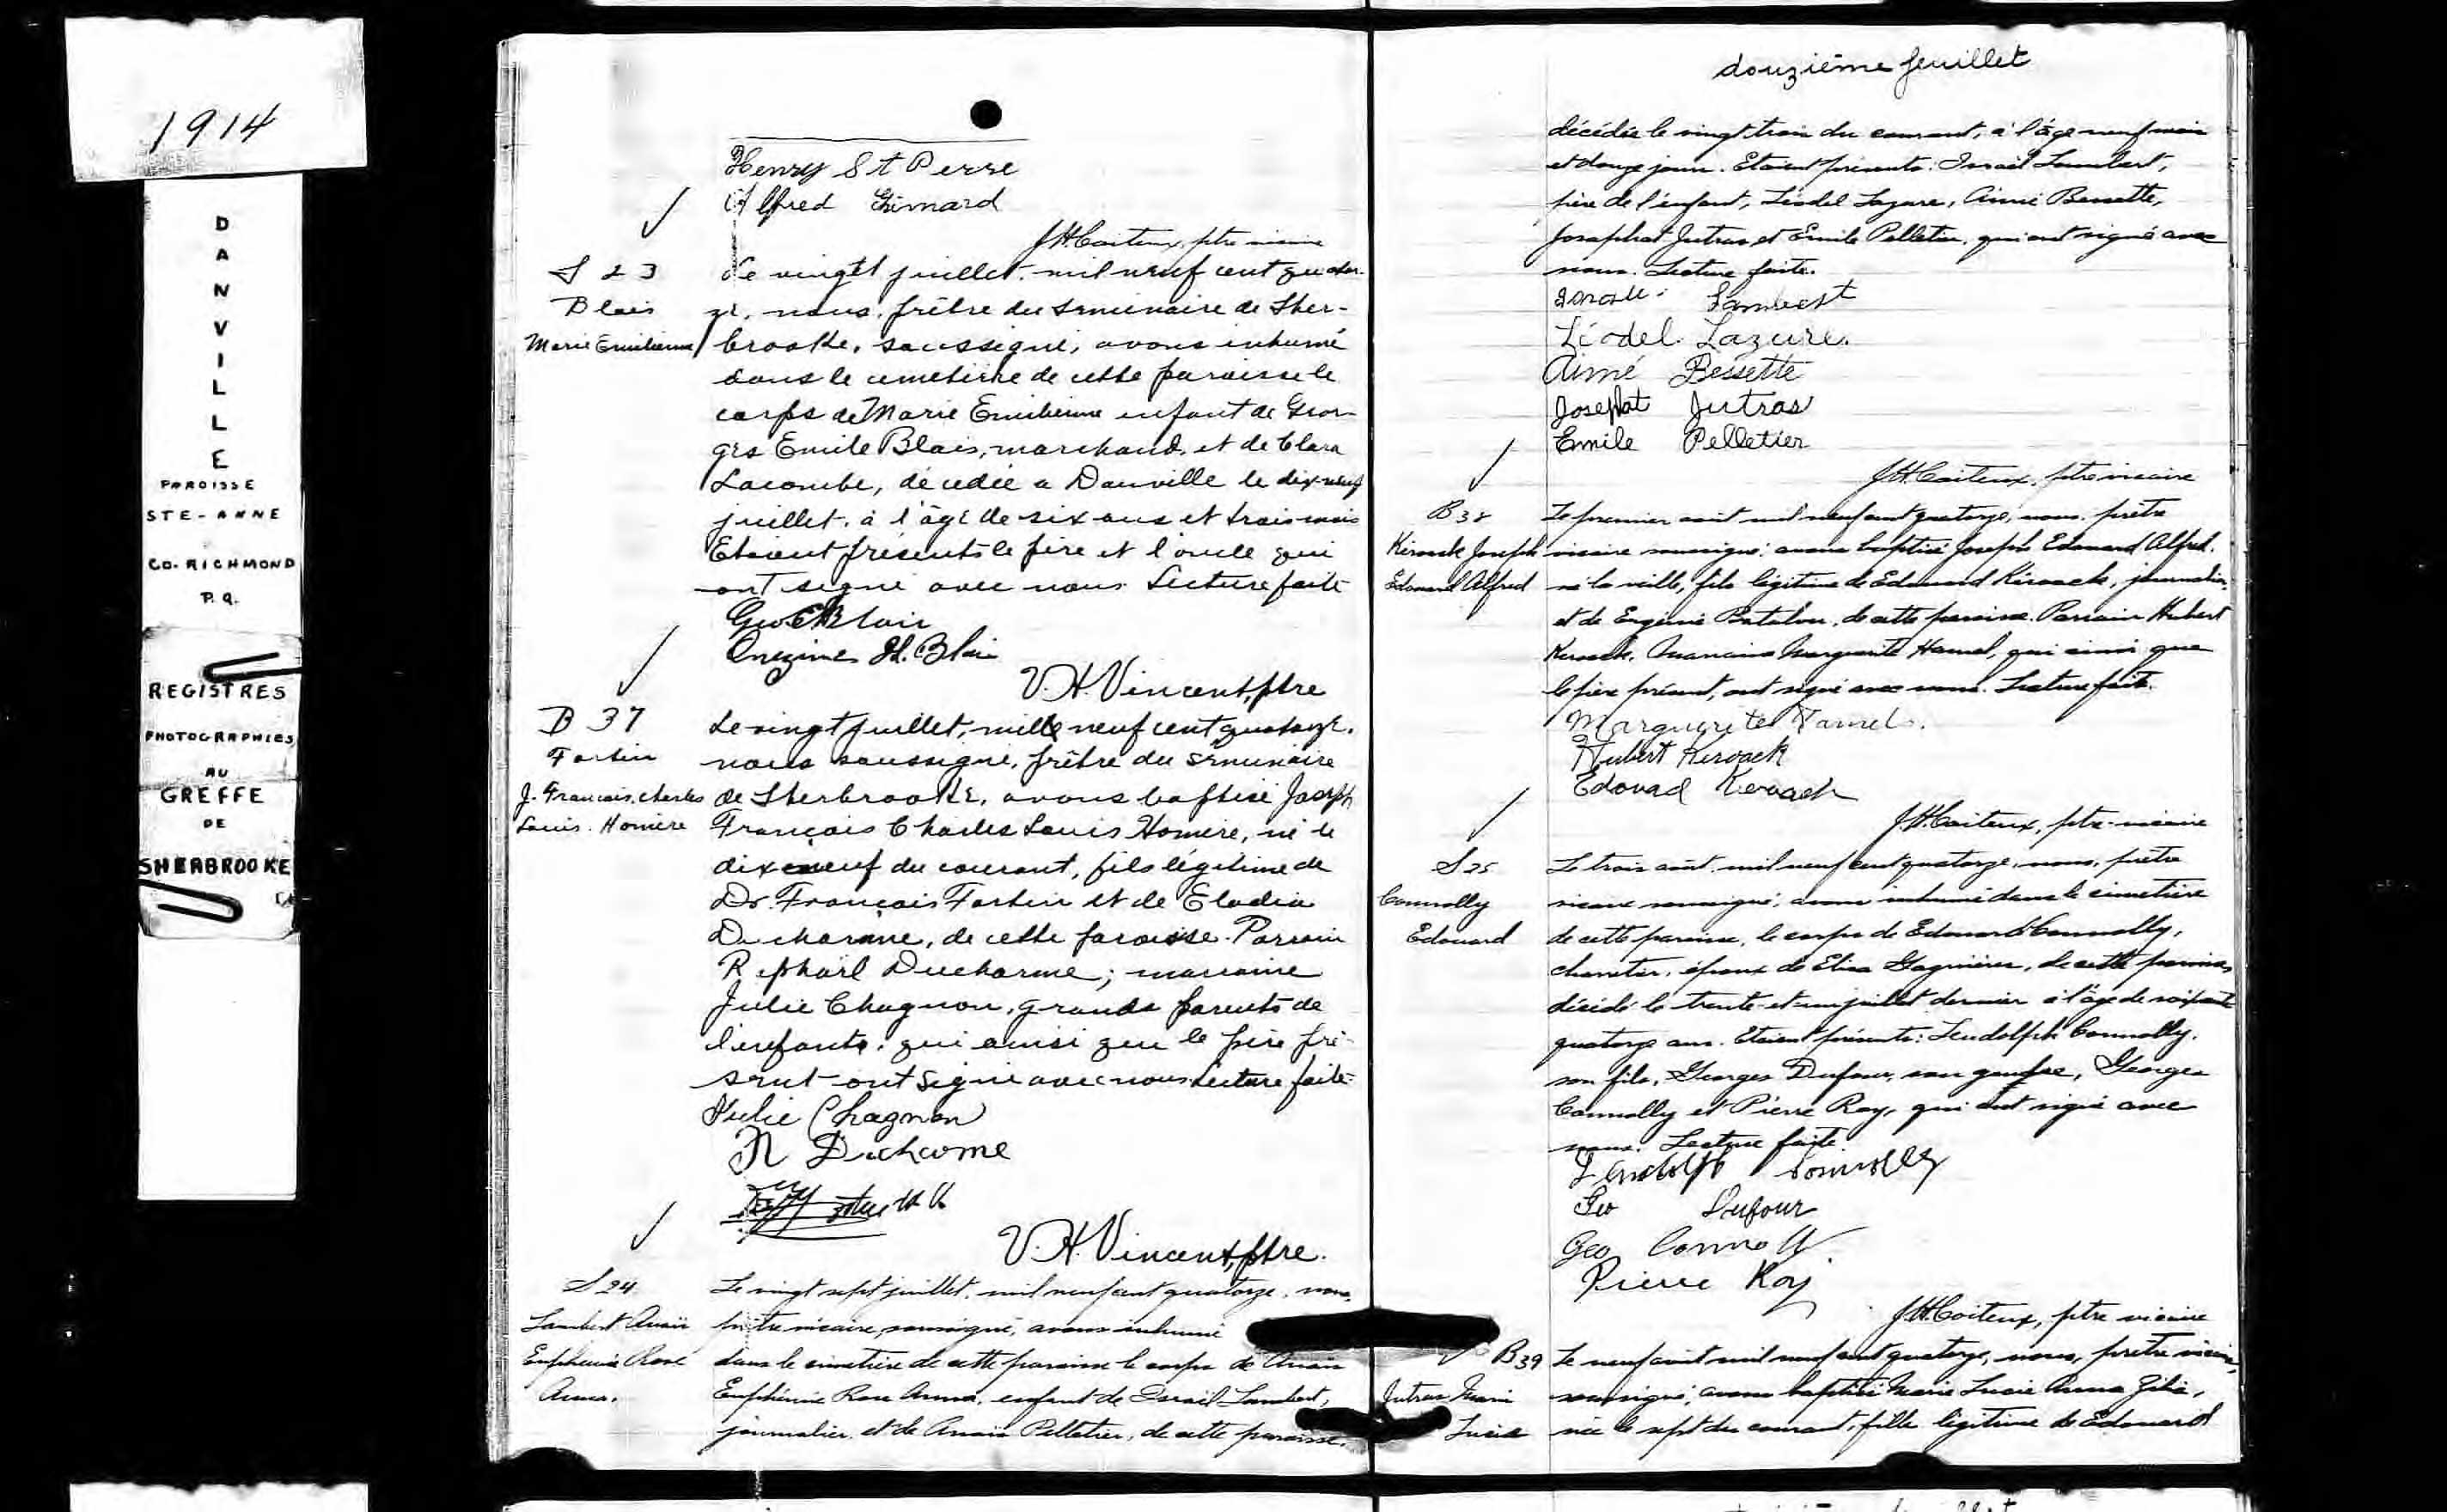 1914
DANVILLE
PAROISSE
STE-ANNE
CO. RICHMOND
P.Q.
REGISTRES
PHOTOGRAPHIES
AU
GREFFE
DE
SHERBROOKE
Henry St Pierre
Alfred Grimard
J.H. Coiteux, ptre vicaire
S 23
Blais
Marie Emilienne
Le vingt juillet mil neuf cent quator-
ze, nous, prêtre du Seminaire de Sher-
brooke, soussigné, avons inhumé
dans le cimetière de cette paroisse le
corps de Marie Emilienne enfant de Geor-
ges Emile Blais, marchand, et de Clara
Lacombe, décédée a Danville le dix-neuf
juillet, à l'âge de six ans et trois mois
Etaient présents le père et l'oncle qui
ont signé avec nous Lecture faite
Geo E Blais
Onezime H. Blais
V.H. Vincent, ptre
B 37
Fortin
J. François. Charles
Louis. Homère
Le vingt juillet, mille neuf cent quatorze.
nous soussigné, prêtre du Séminaire
de Sherbrooke, avons baptisé Joseph
François Charles Louis Homère, né le
dix neuf du courant, fils légitime de
Dr. François Fortin et de Elodia
Ducharme, de cette paroisse. Parrain
Raphael Ducharme; marraine
Julie Chagnon, grands parents de
l'enfants, qui ainsi que le père pré-
sent ont signé avec nous Lecture faite
Julie Chagnon
R Ducharme
V.H. Vincent, ptre.
S 24
Lambert Anaïs
Euphémie Rose
Anna.
Le vingt sept juillet, mil neuf cent quatorze, nous,
prêtre vicaire, soussigné, avons inhumé
dans le cimetière de cette paroisse le corps de Anaïs
Euphémie Rose Anna, enfant de Israël Lambert,
journalier, et de Anaïs Pelletier, de cette paroisse,
douzième feuillet
décédée le vingt trois du courant, à l'âge neuf mois
et douze jours. Etaient présents: Israël Lambert,
père de l'enfant, Léodel Lazure, Aimé Bessette,
Josaphat Jutras et Emile Pelletier, qui ont signé avec
nous. Lecture faite.
Lambert
Léodel Lazure.
Aimé Bessette
Josephat Jutras
Emile Pelletier
J.H. Coiteux, ptre vicaire
B 38
Kirouack Joseph
Edouard Alfred
Le premier août mil neuf cent quatorze, nous, prêtre
vicaire soussigné, avons baptisé Joseph Edouard Alfred,
né la veille, fils légitime de Edouard Kirouack, journalier,
et de Eugénie, de cette paroisse. Parrain Hubert
Kirouack, marraine Marguerite Hamel, qui ainsi que
le père présent, ont signé avec nous. Lecture faite.
Marguerite Hamel.
Hubert Kerouack
Edouad Kerouack
J.H. Coiteux, ptre-vicaire
S 25
Connolly
Edouard
Le trois août, mil neuf cent quatorze, nous, prêtre
vicaire soussigné, avons inhumé dans le cimetière
de cette paroisse, le corps de Edouard Connolly,
charretier, époux de Elisa, de cette paroisse,
décédé le trente-et-un juillet dernier à l'âge de soixante
quatorze ans. Etaient présents: Lendolph Connolly,
son fils, Georges Dufour, son gendre, Georges
Connolly et Pierre Roy, qui ont signé avec
nous. Lecture faite.
Connolly
Geo Dufour
Geo Connolly
Pierre Roy
J.H. Coiteux, ptre vicaire
B 39
Jutras Marie
Lucie
Le neuf août mil neuf cent quatorze, nous, prêtre vicaire,
soussigné, avons baptisé Marie Lucie Anna Zélia,
née le sept du courant, fille légitime de Edouard